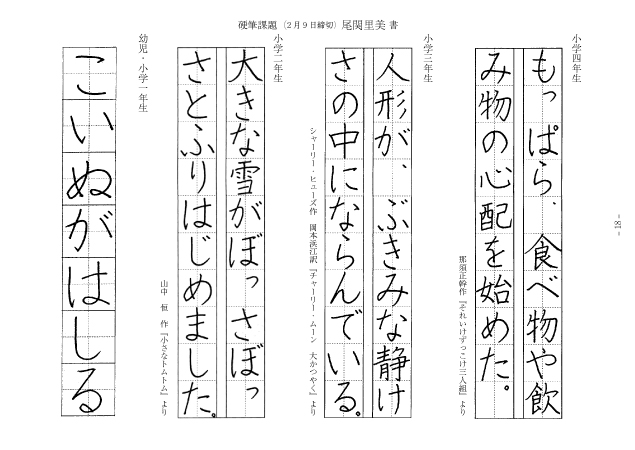 硬筆課題（2月9日締切）尾関里美 書
小学四年生
もっぱら、食べ物や飲
み物の心配を始めた。
那須正幹作『それいけずっこけ三人組』より
小学三年生
人形が、ぶきみな静け
さの中にならんでいる。
シャーリー・ヒューズ作　岡本浜江訳『チャーリー・ムーン　大かつやく』より
小学二年生
大きな雪がぼっさぼっ
さとふりはじめました。
山中　恒　作『小さなトムトム』より
幼児・小学一年生
こいぬがはしる